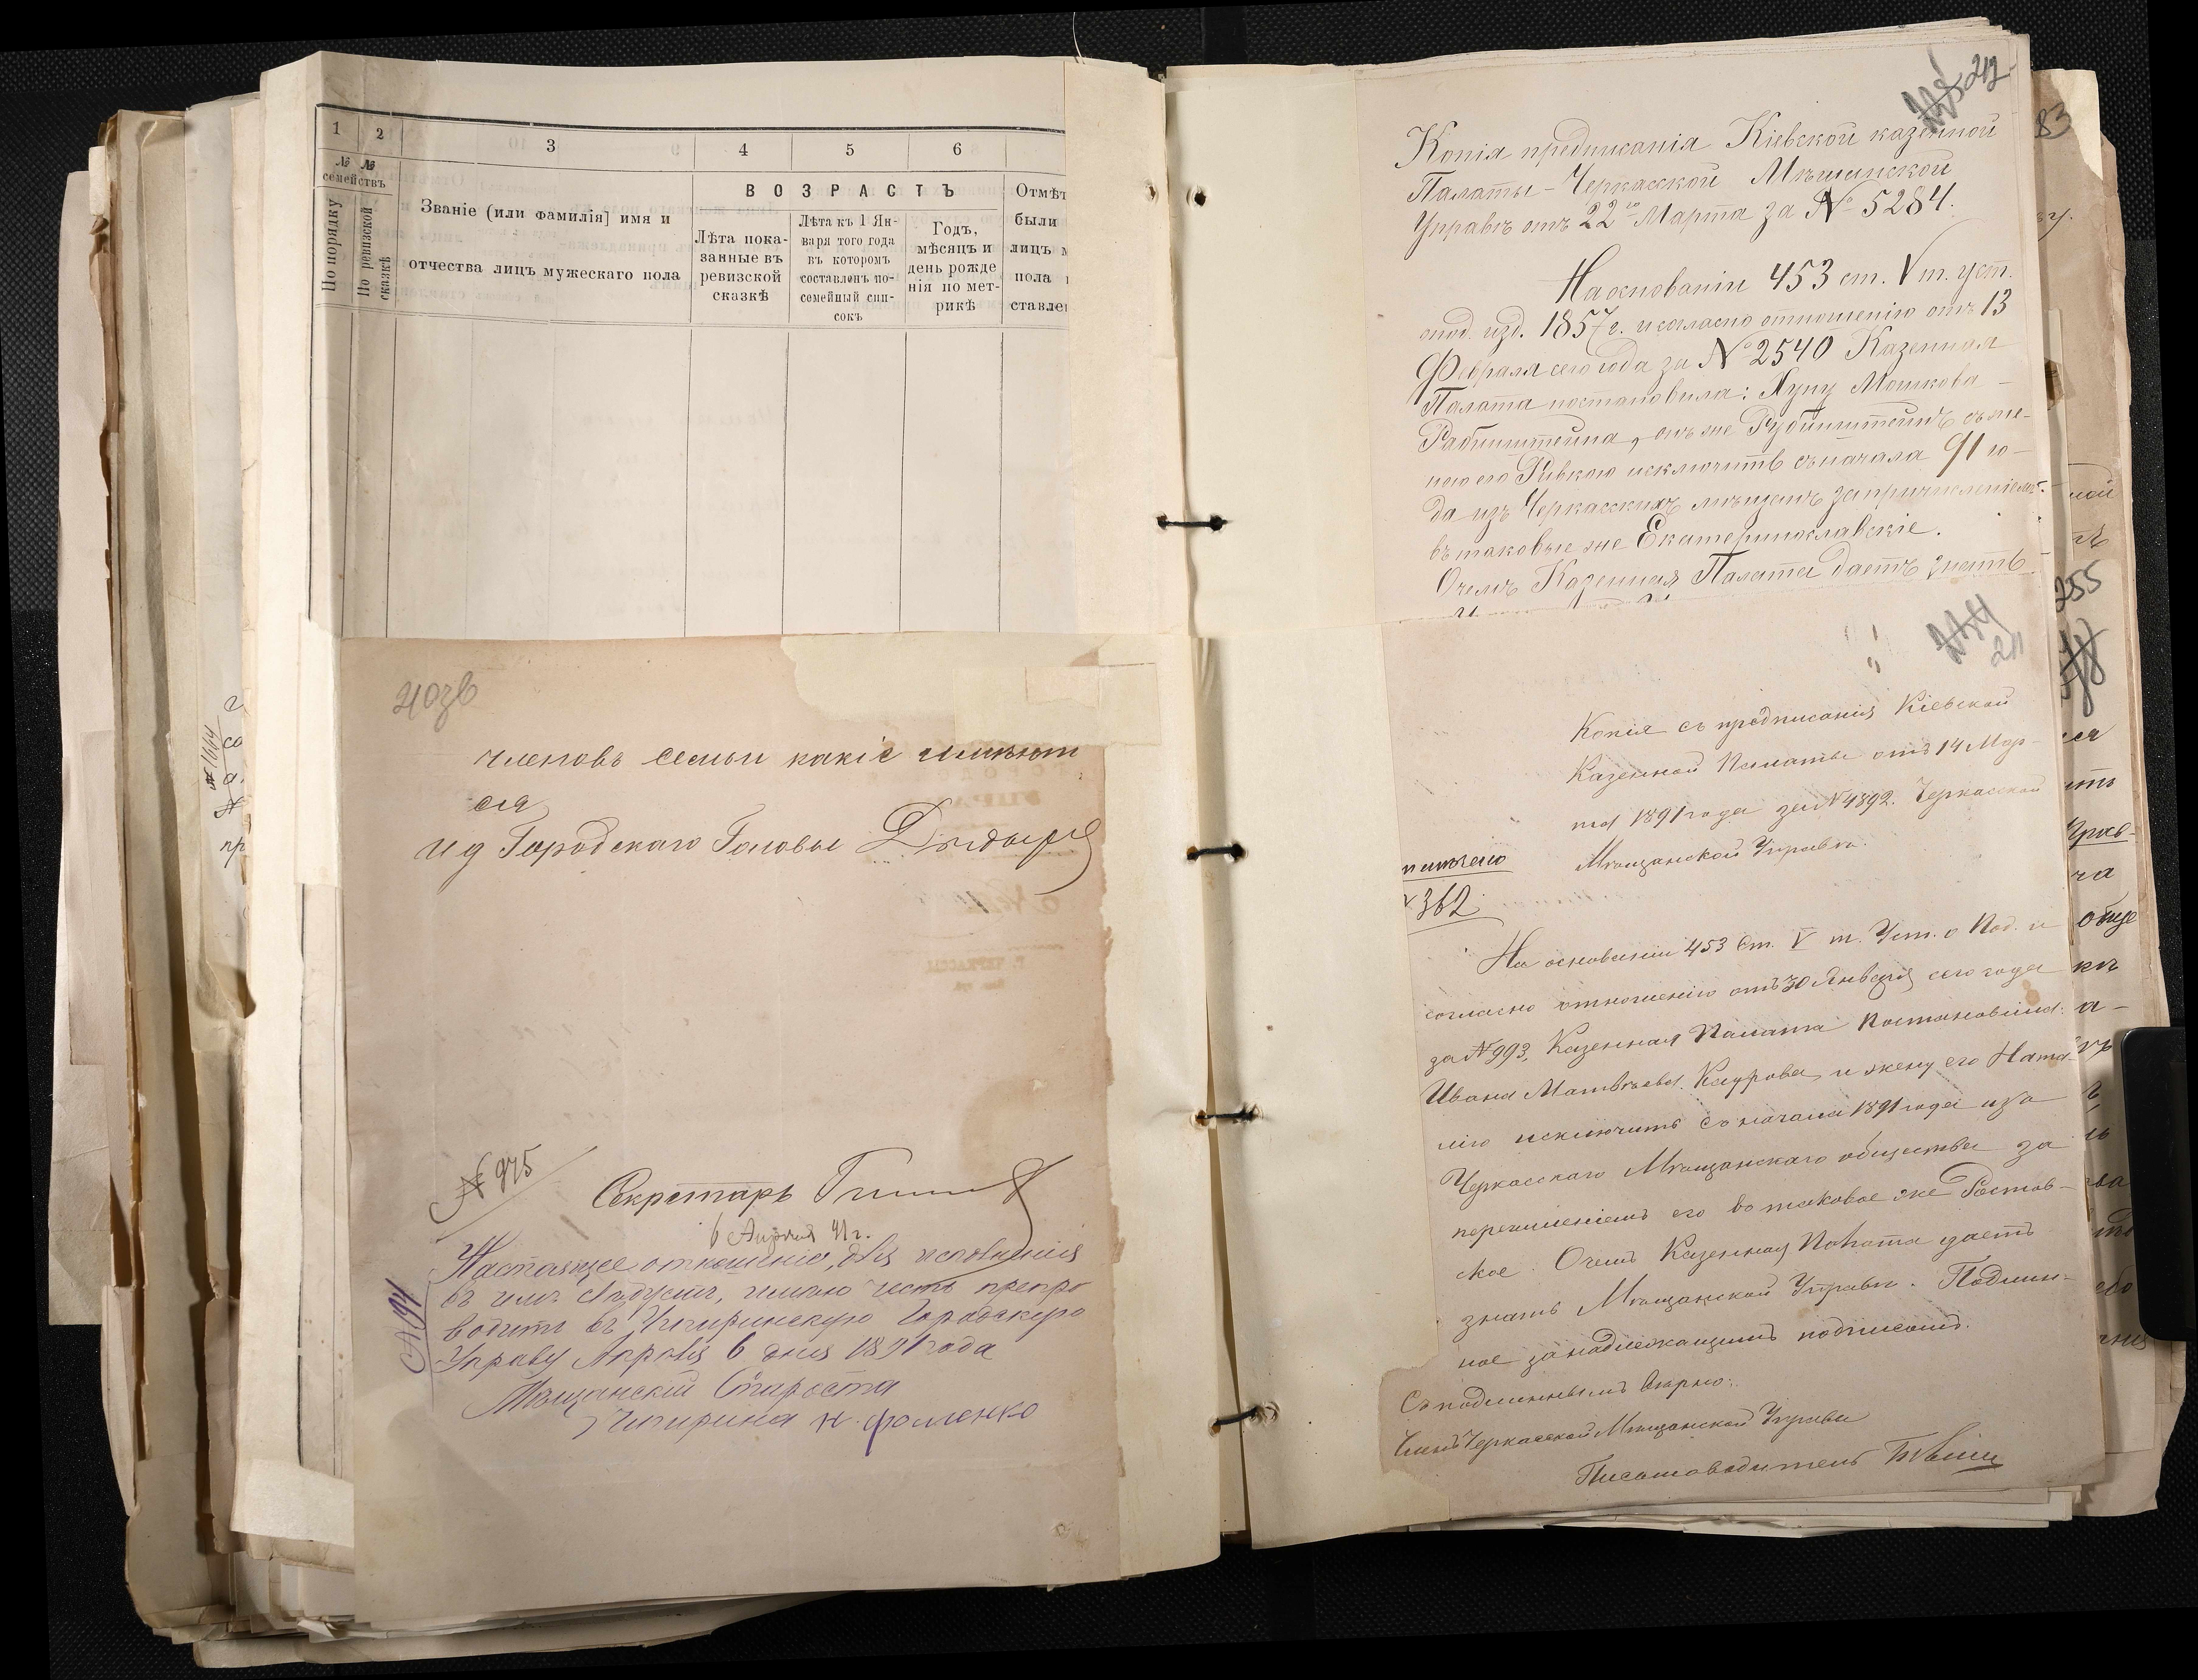 1 2 3 4 5 6
№ № семействъ
По порядку
По ревизской сказкѣ
Званіе (или фамилія] имя и
отчества лицъ мужескаго пола
ВОЗРАСТЪ
Лѣта пока-
занные въ
ревизской
сказкѣ
Лѣта къ 1 Ян-
варя того года
въ которомъ
составленъ по-
семейный спи-
сокъ
Годъ,
мѣсяцъ и
день рожде
нія по мет-
рикѣ
Отмѣт
были
лицъ
пола
ставле
членовъ семьи какіе имѣют
ся
И д Городскаго Головы
№ 975
Секретарь
6 Апрѣля 91 г.
Настоящее отношеніе, для исполненія
въ чемъ слѣдуетъ, имѣю честь препро
водить въ Чигиринскую Городскую
Управу Апрѣля 6 дня 1891 года
Мѣщанскій Староста
Чигирина Н. Фоменко
№ 194
212
Копія предписанія Кіевской казенной
Палаты - Черкасской Мѣщанской
Управѣ отъ 22го Марта за № 5284.
На основаніи 453 ст. V т. уст.
о под. изд. 1857 г. и согласно отношенію отъ 13
Февраля сего года за № 2540 Казенная
Палата постановила: Нуну Мошкова
Рабинштейна, онъ же Рубинштейнъ съ же-
ною его Ривкою исключить съ начала 91 го-
да изъ Черкасскихъ мѣщанъ за причисленіемъ
въ таковые же Екатеринославскіе.
О чемъ Казенная Палата даетъ знать
211
Копія съ предписанія Кіевской
Казенной Палаты отъ 14 Мар-
та 1891 года за № 4892. Черкасской
Мѣщанской Управѣ.
362
На основаніи 453 ст. V т. Уст. о Под. и
согласно отношенію отъ 30 Января сего года
за № 993, Казенная Палата постановила:
Ивана Матвѣева Каурова, и жену его Ната-
лію исключить съ начала 1891 года изъ
Черкасскаго Мѣщанскаго общества за
перечисленіемъ его въ таковое же Ростов-
ское. О чемъ Казенная Палата даетъ
знать Мѣщанской Управѣ. Подлин-
ное за надлежащимъ подписомъ.
Съ подлиннымъ вѣрно:
Членъ Черкасской Мѣщанской Управы
Письмоводитель
255